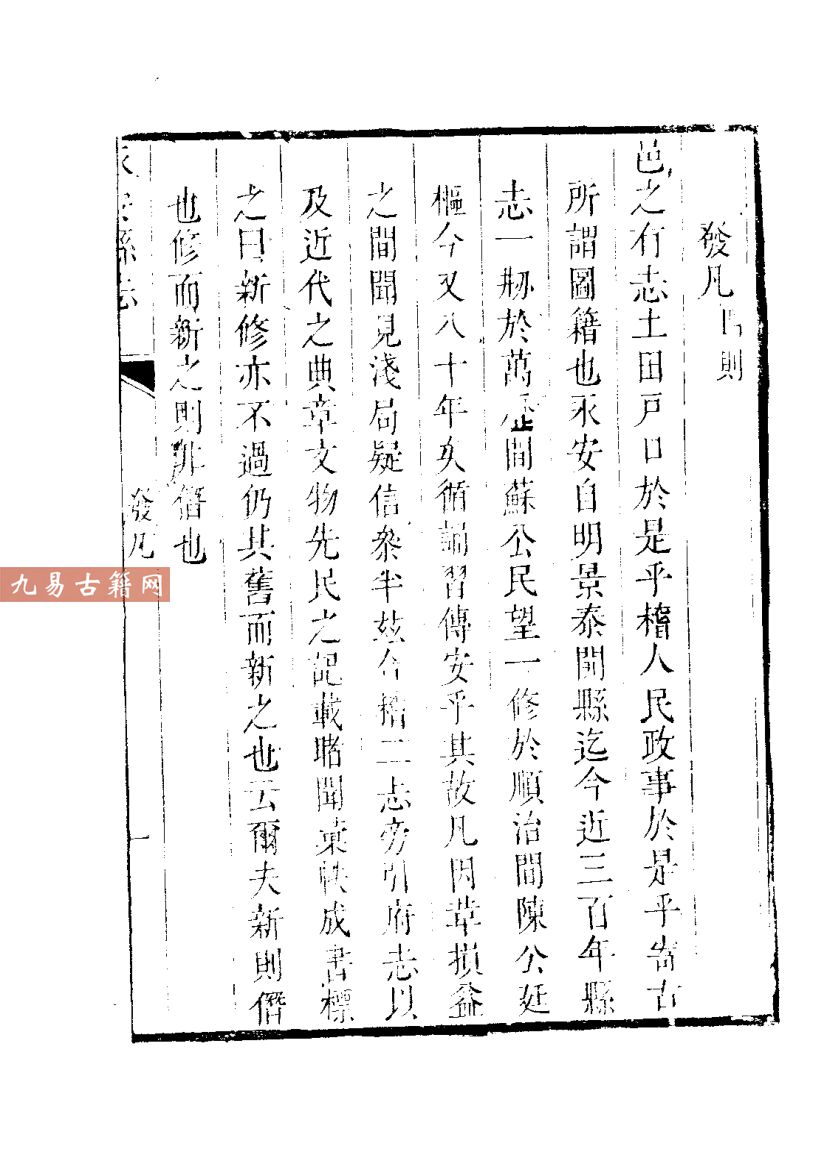 發凡 四則
邑之有志土田戸口於是乎稽人民政事於是乎耑古
所謂圖籍也永安自明景泰開縣迄今近三百年縣
志一刱於萬歷間蘇公民望一修於順治間陳公廷
樞今又八十年矣循誦習傳安乎其故凡因革損益
之間聞見淺局疑信參半玆合稽二志旁引府志以
及近代之典章文物先民之記載睹聞彙帙成書標
之曰新修亦不過仍其舊而新之也云爾夫新則僭
也修而新之則非僭也
永安縣志
發凡
一
九易古籍网